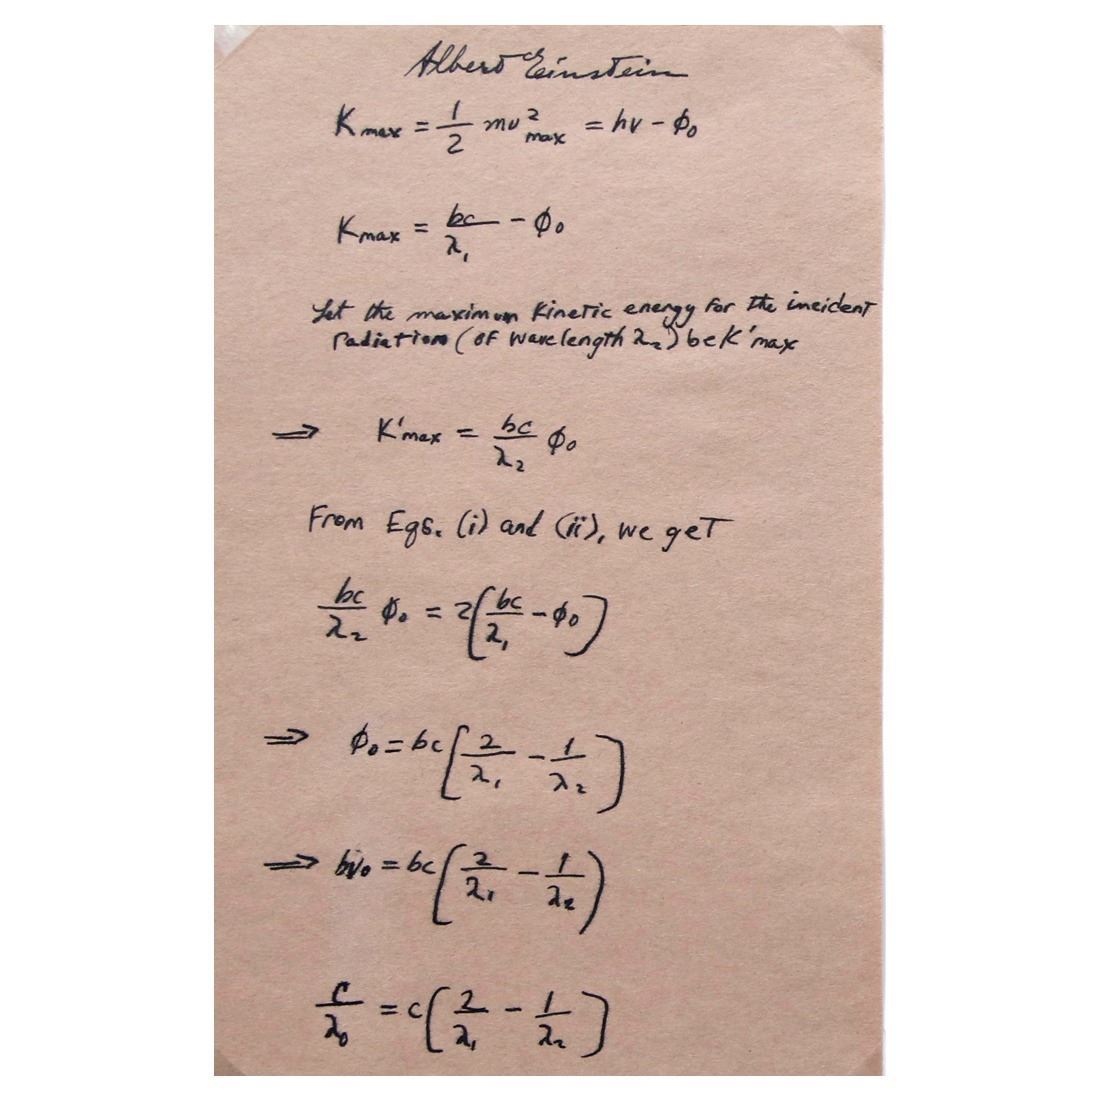 Albert Einstein
K max = 1/2 mv² max = hv - ϕ₀
Kmax = bc/λ₁ - ϕ₀
Let the maximum Kinetic energy for the incident
radiation (of wavelength λ₂) be K'max
⇒ K'max = bc/λ₂ ϕ₀
From Eqs. (i) and (ii), we get
bc/λ₂ ϕ₀ = 2(bc/λ₁ - ϕ₀)
⇒ ϕ₀ = bc(2/λ₁ - 1/λ₂)
⇒ bv₀ = bc(2/λ₁ - 1/λ₂)
c/λ₀ = c(2/λ₁ - 1/λ₂)